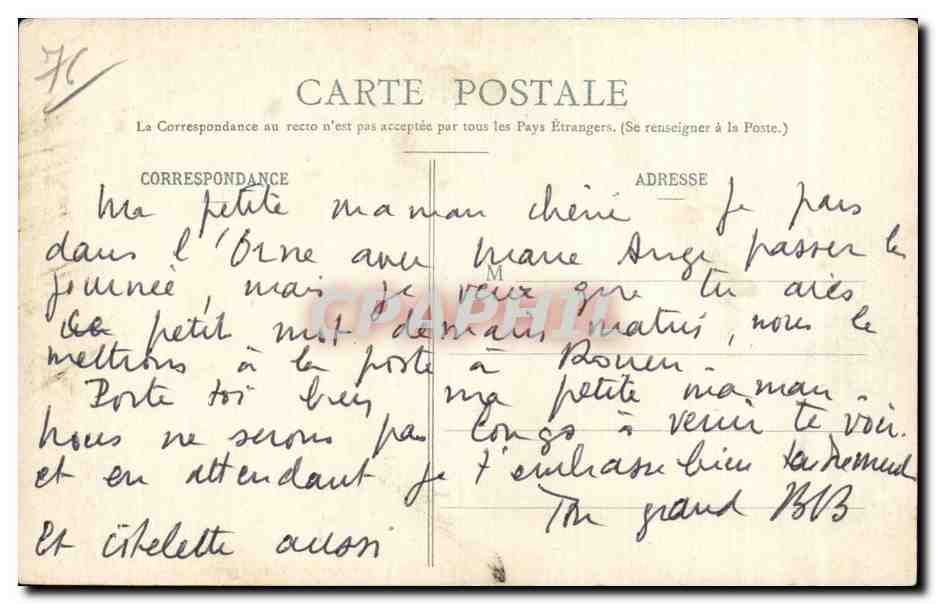 76
CARTE POSTALE
La Correspondance au recto n'est pas acceptée par tous les Pays Étrangers. (Se renseigner à la Poste.)
CORRESPONDANCE
ADRESSE
Ma petite maman chérie Je pars
dans l'Orne avec Marie Ange passer la
M
journée, mais je veux que tu aies
petit mot demain matin, nous le
CPAPHIL
mettrons à la poste à Rouen.
Porte toi bien ma petite maman.
Nous ne serons pas longs à venir te voir.
et en attendant je t'embrasse bien tendrement
Ton grand BB
Et aussi